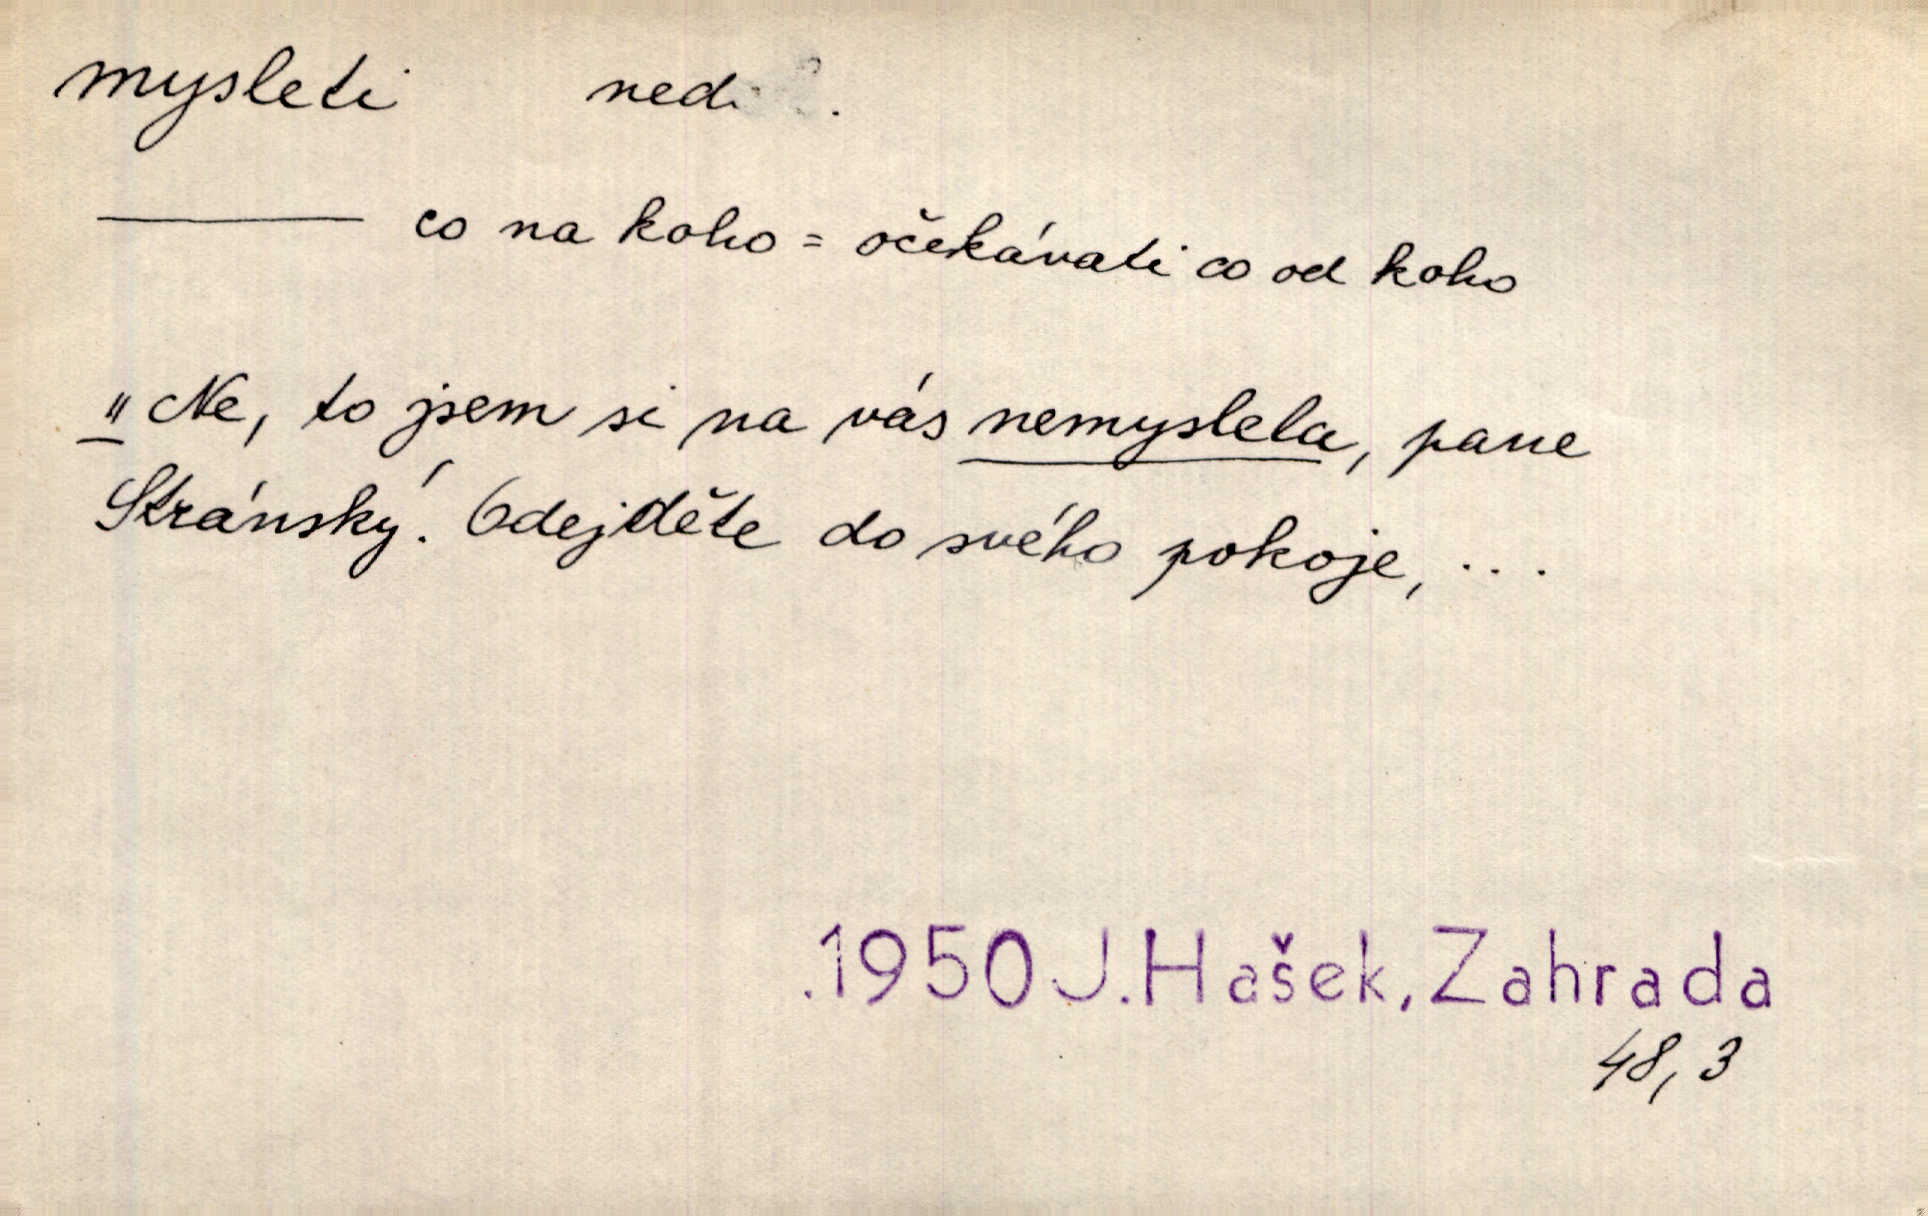 mysleti ned.
——— co na koho = očekávati co od koho
"Ne, to jsem si na vás nemyslela, pane
Stránský. Odejděte do svého pokoje, ...
.1950 J.Hašek, Zahrada
48, 3